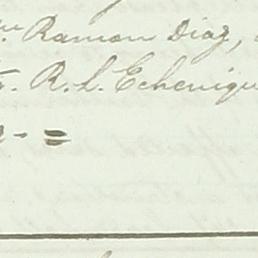 Ramon Diaz,
R. L. Echenique